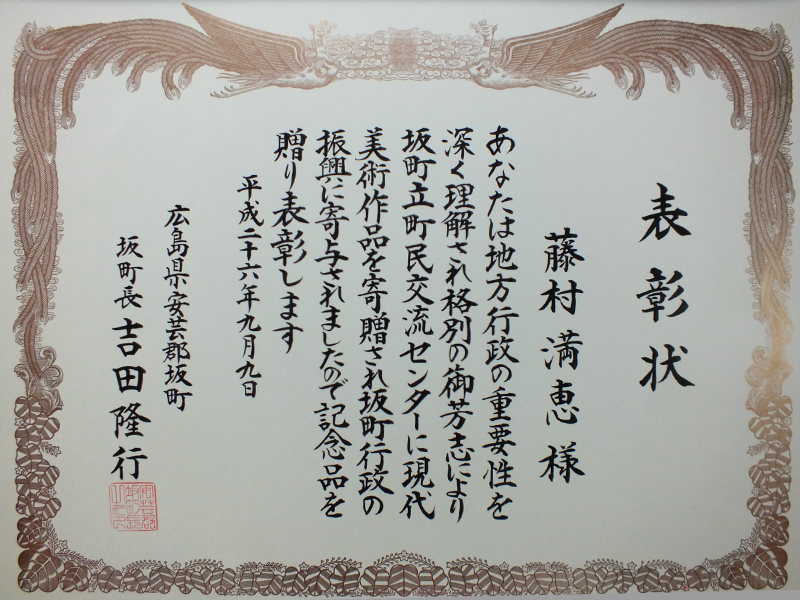 表彰状
藤村満恵様
あなたは地方行政の重要性を
深く理解され格別の御芳志により
坂町立町民交流センターに現代
美術作品を寄贈され坂町行政の
振興に寄与されましたので記念品を
贈り表彰します
平成二十六年九月九日
広島県安芸郡坂町
坂町長 吉田隆行